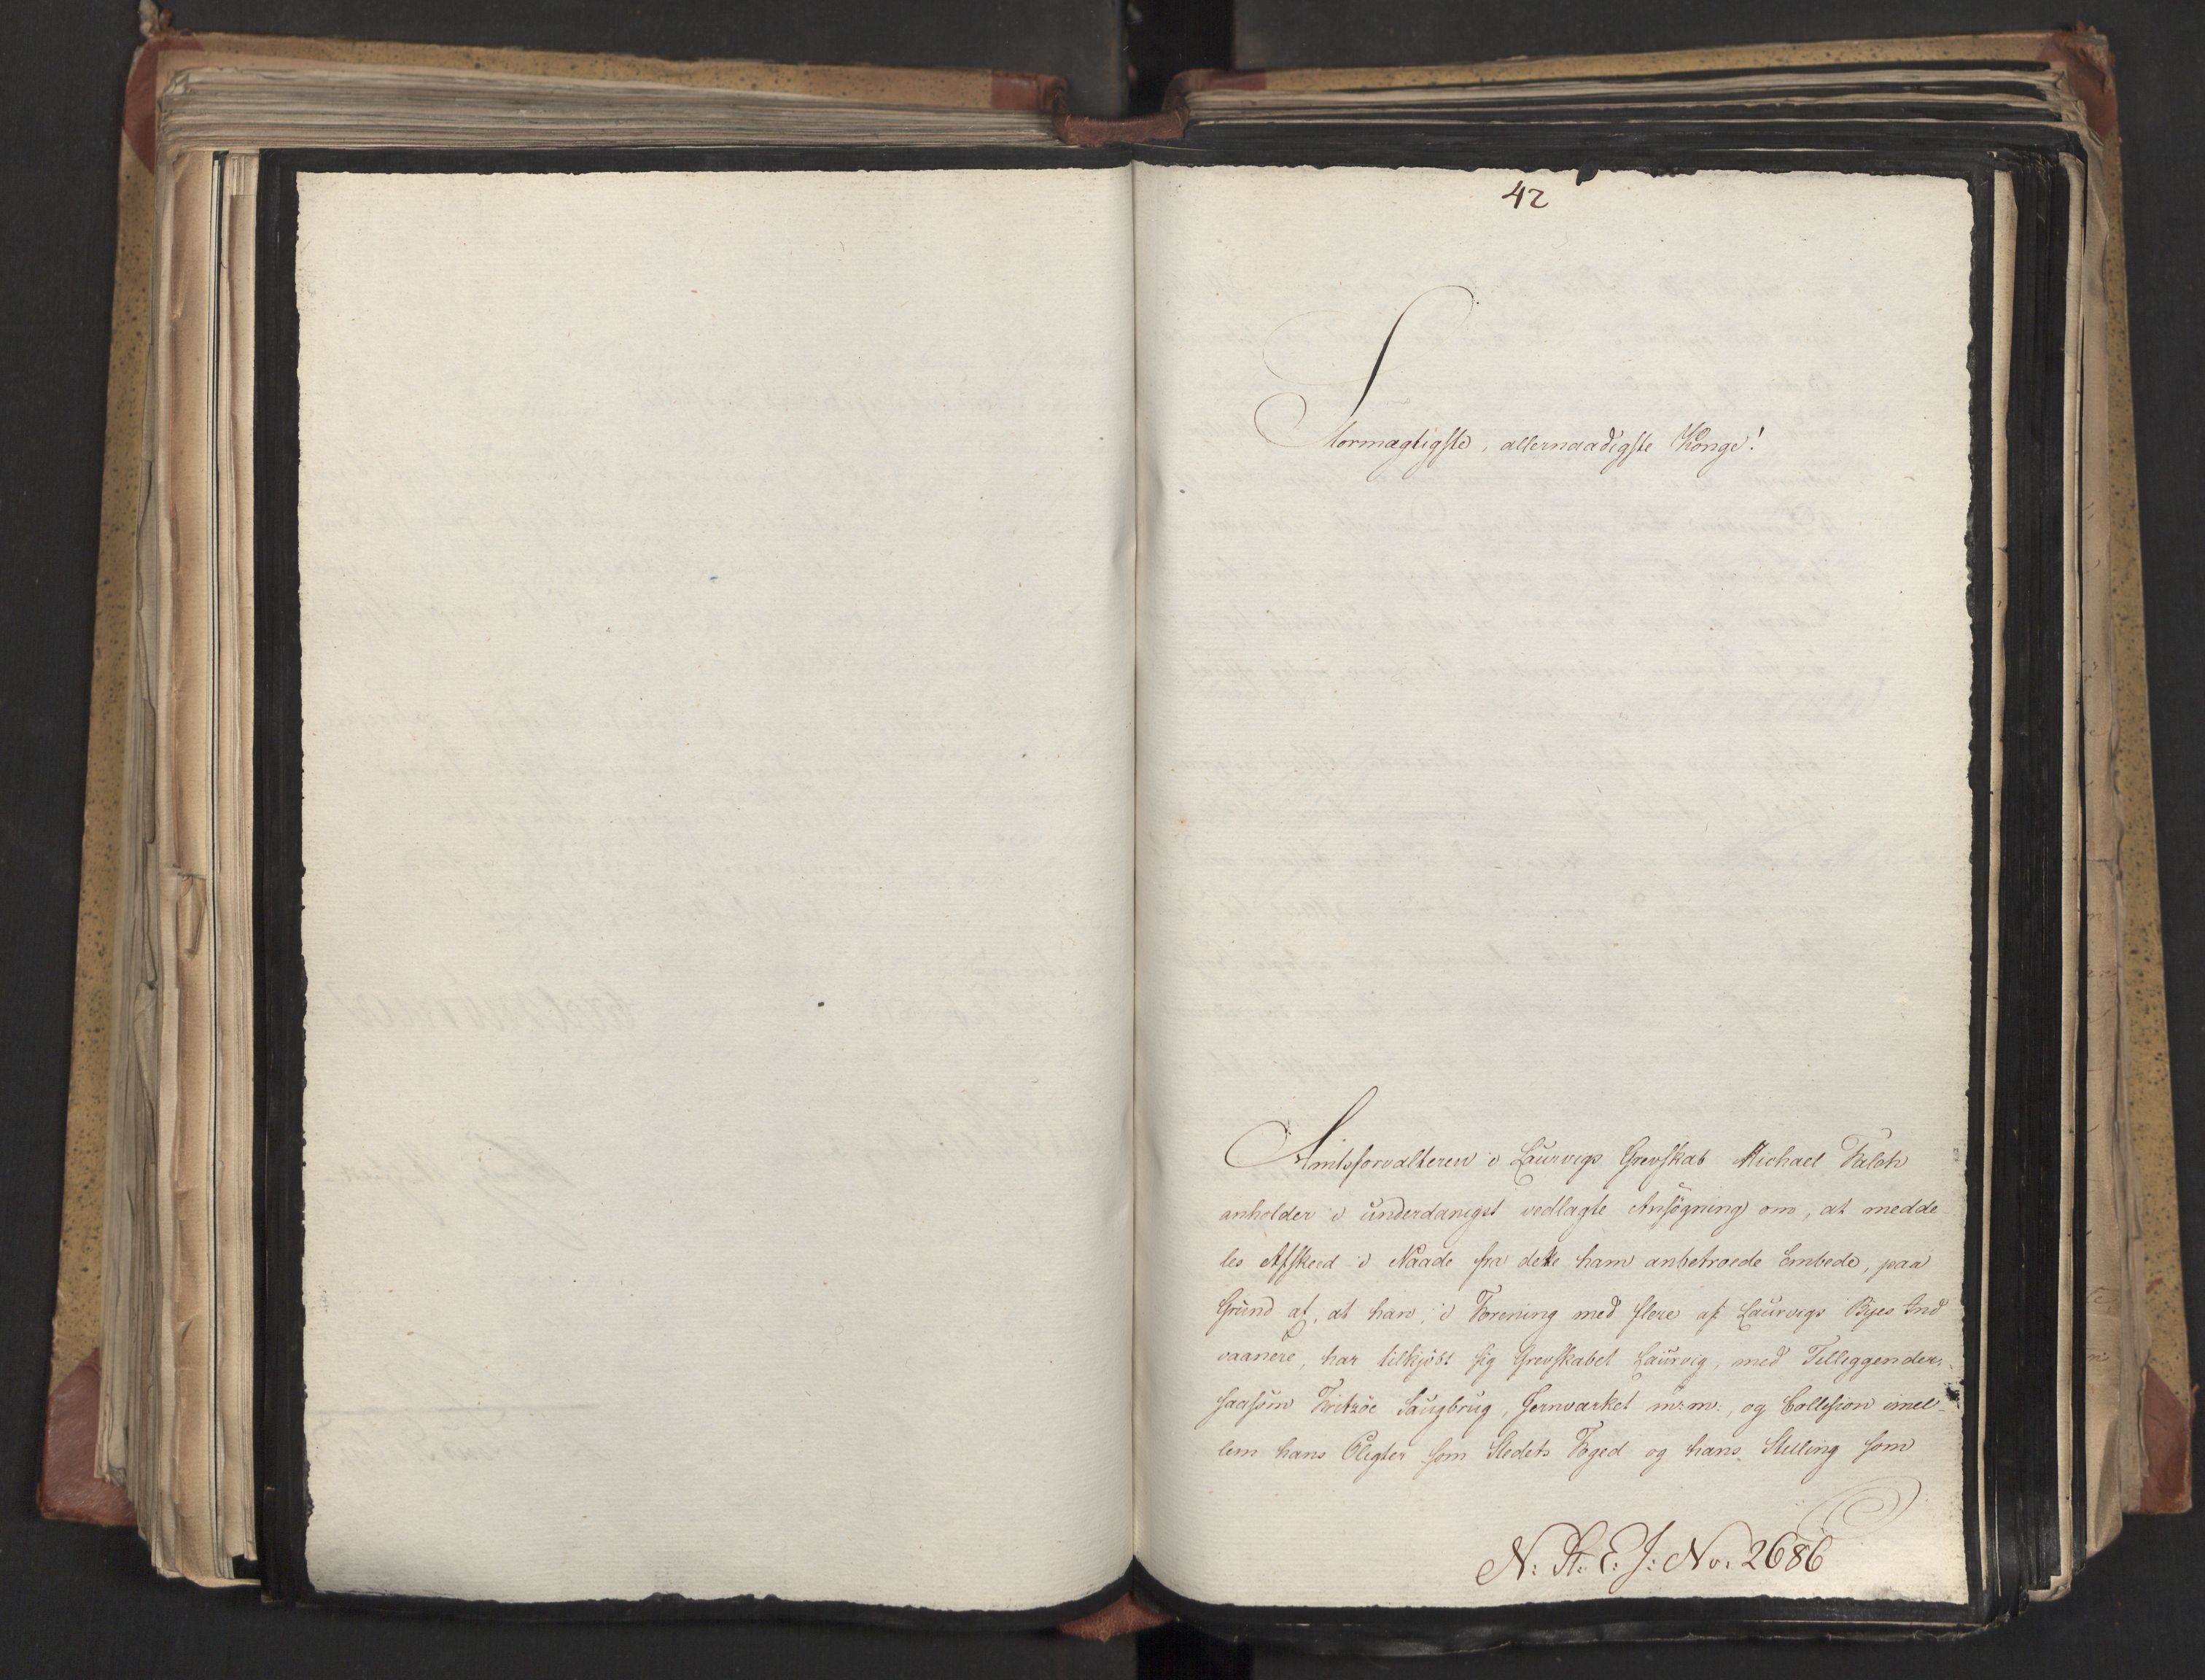 42
Stormægtigste, allernaadigste Konge!
Amtsforvalteren i Laurvigs Grevskab Michael Falch
anholder i underdanigst vedlagte Ansøgning om, at medde-
les Afskeed i Naade fra dette ham anbetroede Embede, paa
Grund af, at han, i Forening med flere af Laurvigs Byes Ind
vaanere, har tilkjøbt sig Grevskabet Laurvig, med Tilliggender,
saasom Fritzöe Saugbrug, Jernværket m: m:, og Collision imel-
lem hans Pligter som Stedets Foged og hans Stilling som
N: St: E: J: No: 2686